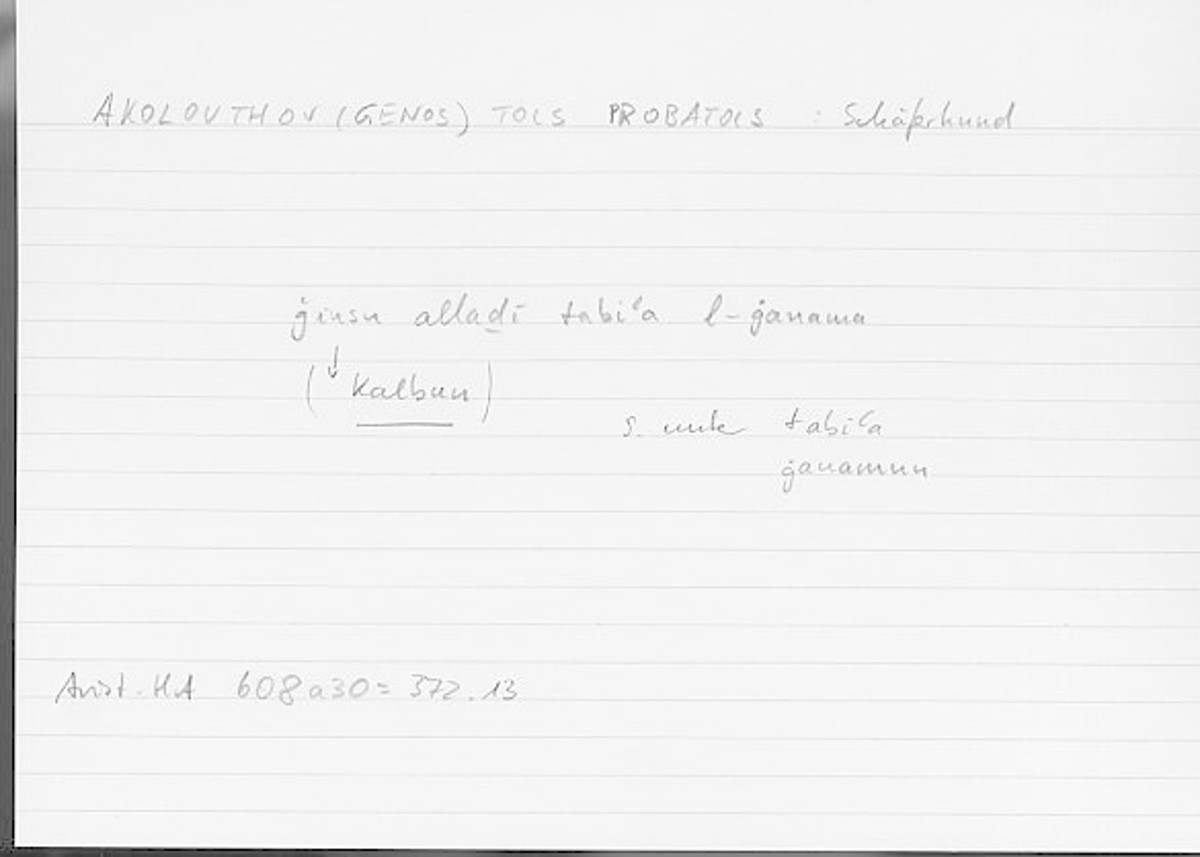 AKOLOUTHOU (GENOS) TOIS PROBATOIS : Schäferhund
ǧinsu alladī tabiʿa l-ġanama
(↓ Kalbun)
s. unter tabiʿa
ġanamun
Arist. HA 608a30 = 372.13